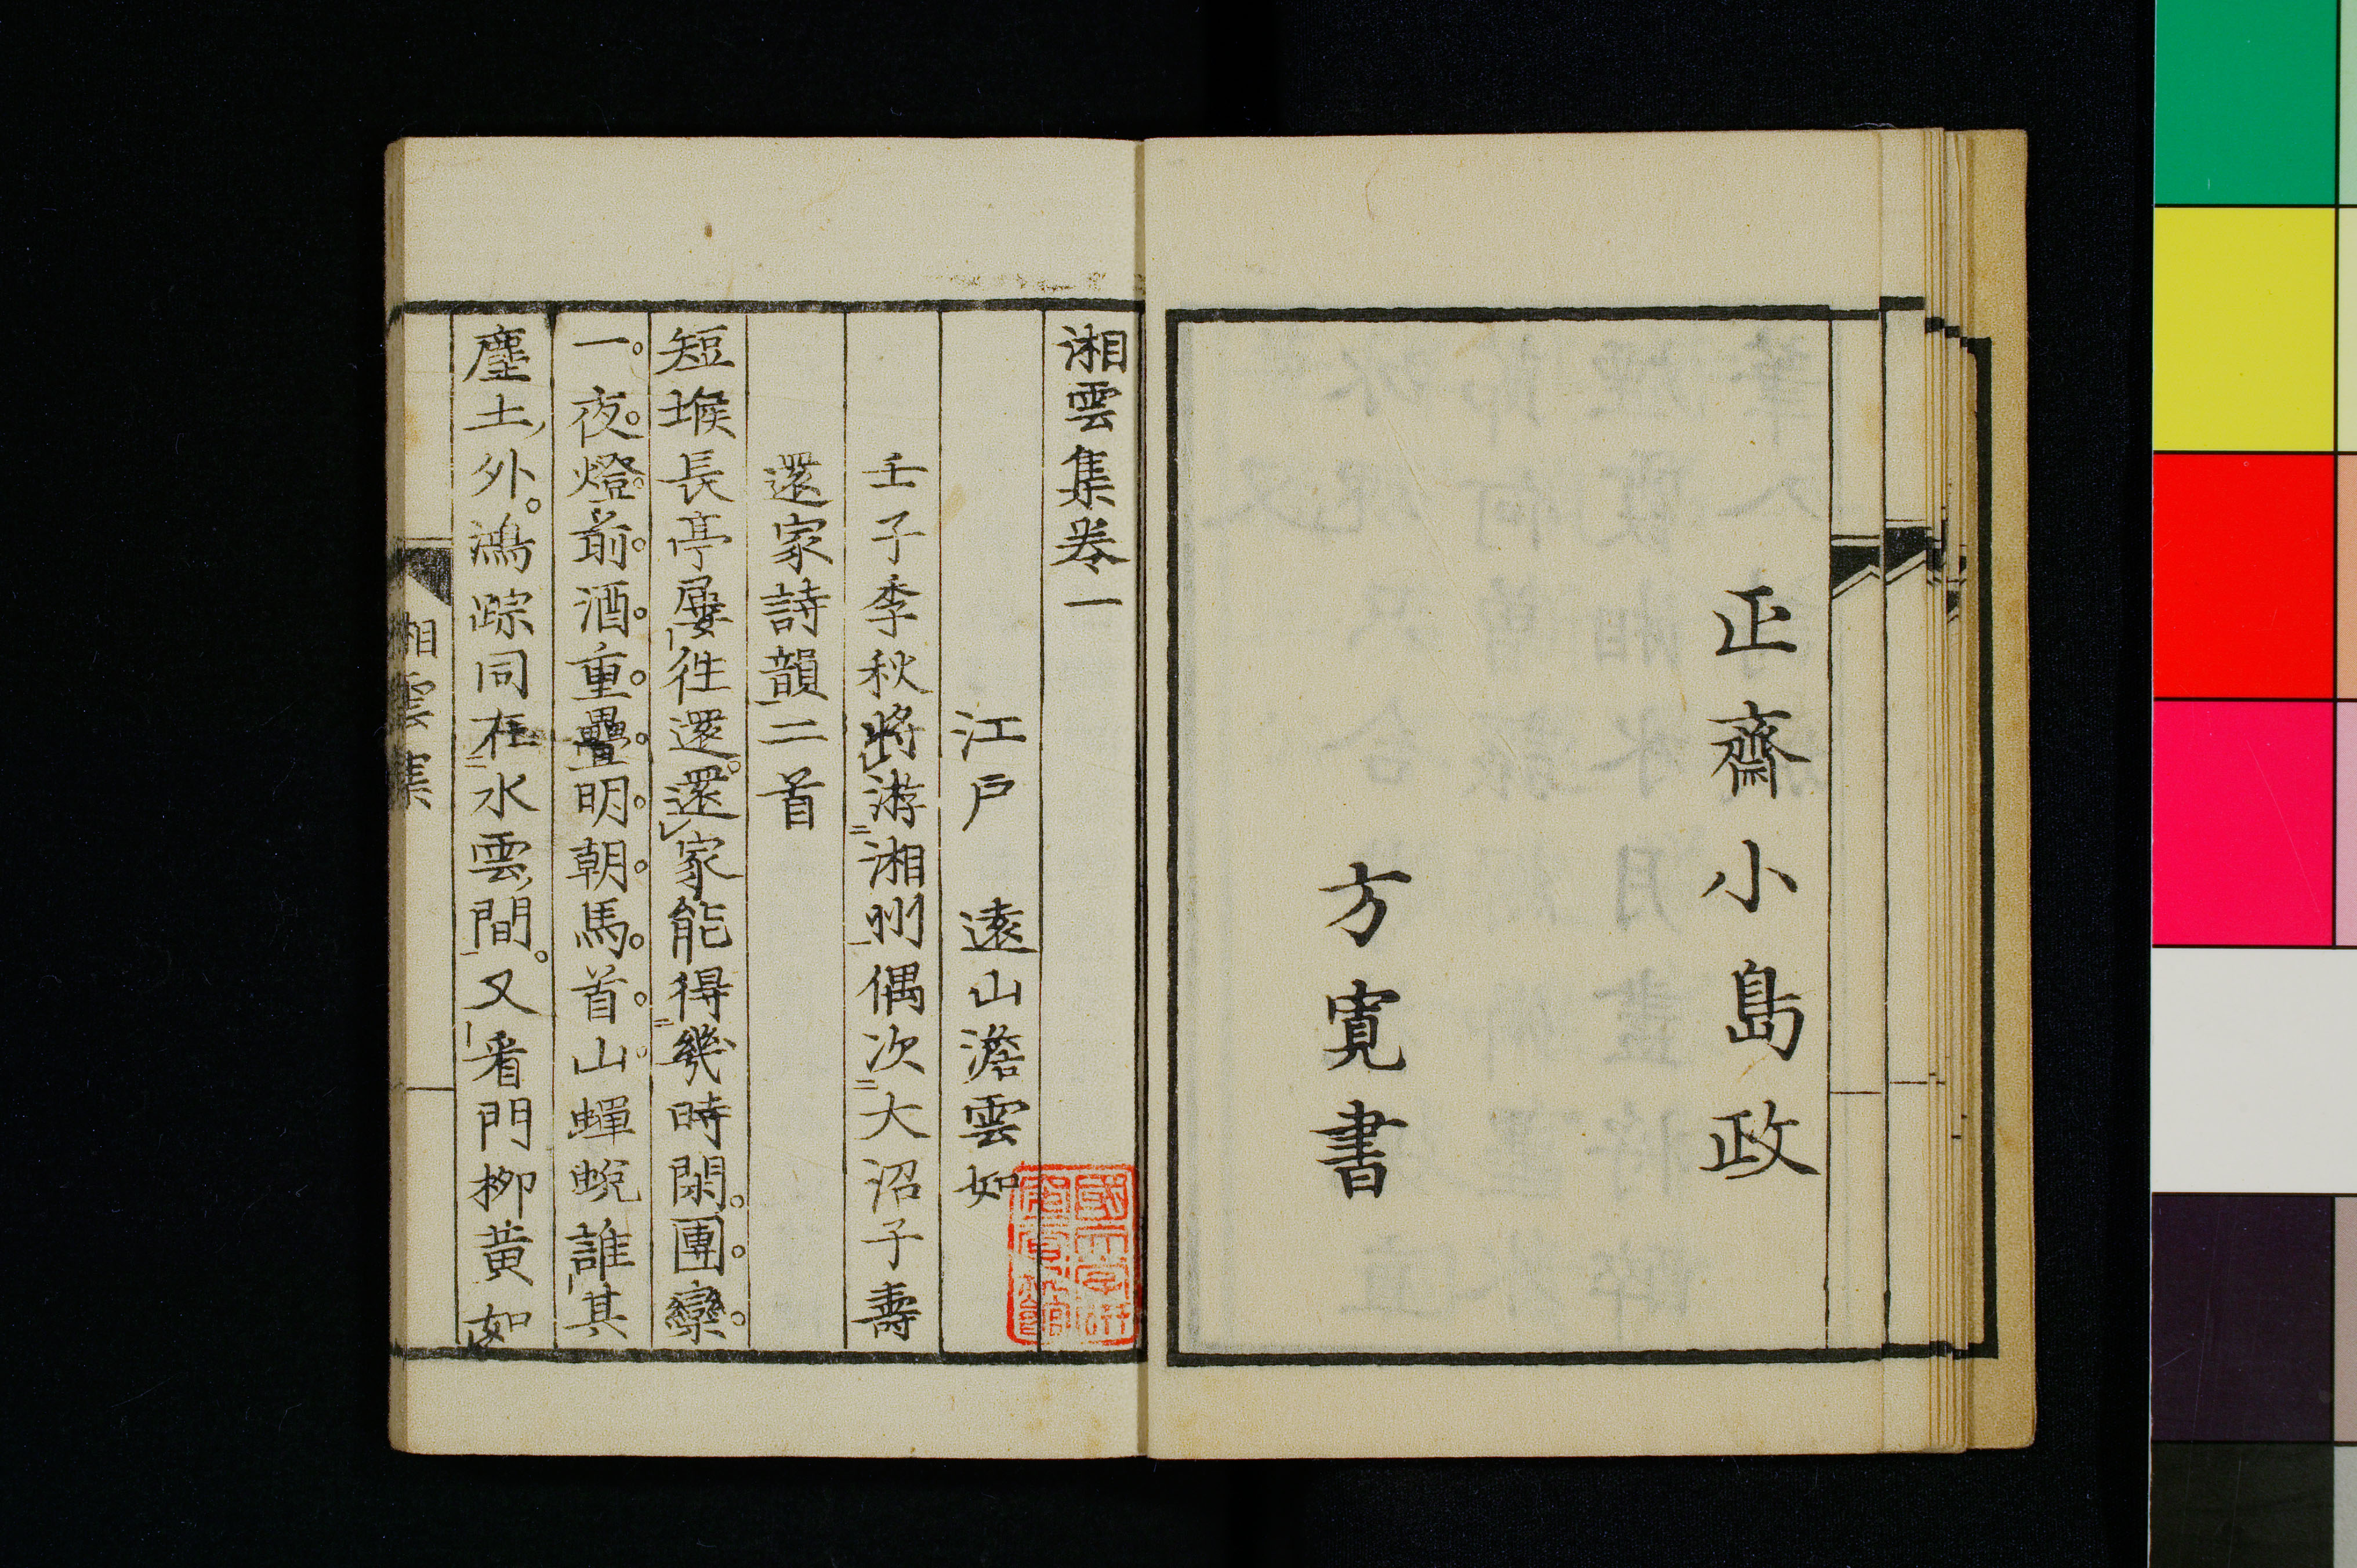 正齋小島政
方寛書
湘雲集卷一
江戸 遠山澹雲如
壬子季秋將游湘州偶次大沼子壽
還家詩韻二首
短堠長亭屢往還。還家能得幾時閑。團欒
一夜燈前酒。重疊明朝馬首山。蟬蛻誰其
塵土外。鴻踪同在水雲間。又看門柳黄如
湘雲集